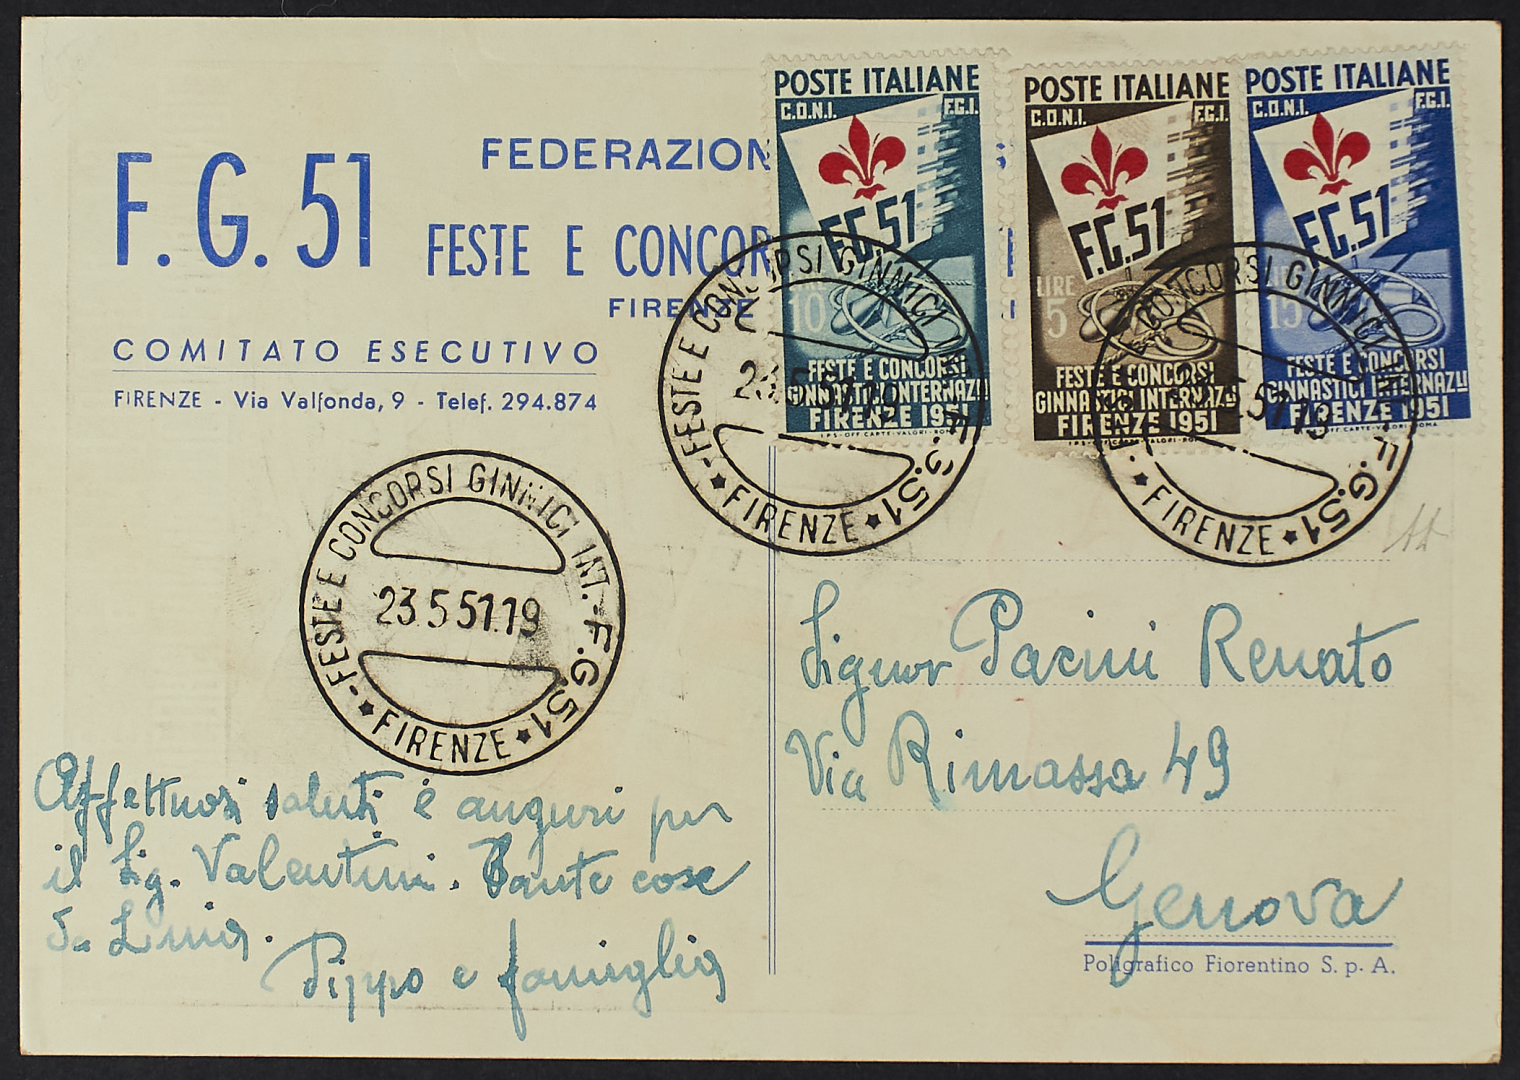 F. G. 51
FEDERAZION
FESTE E CONCOR
FIRENZE
COMITATO ESECUTIVO
FIRENZE - Via Valfonda, 9 - Telef. 294.874
POSTE ITALIANE
C.O.N.I. F.G.I.
F.G.51
LIRE 10
FESTE E CONCORSI
GINNASTICI INTERNAZLI
FIRENZE 1951
I.P.S.-OFF. CARTE-VALORI-ROMA
POSTE ITALIANE
C.O.N.I. F.G.I.
F.G.51
LIRE
5
FESTE E CONCORSI
GINNASTICI INTERNAZLI
FIRENZE 1951
I.P.S.-OFF. CARTE-VALORI-ROMA
POSTE ITALIANE
C.O.N.I. F.G.I.
F.G.51
LIRE
15
FESTE E CONCORSI
GINNASTICI INTERNAZLI
FIRENZE 1951
I.P.S.-OFF. CARTE-VALORI-ROMA
- FESTE E CONCORSI GINNICI INT. - F.G.51
23.5 51.19
★ FIRENZE ★
- FESTE E CONCORSI GINNICI INT. - F.G.51
23.5 51.19
★ FIRENZE ★
- FESTE E CONCORSI GINNICI INT. - F.G.51
23.5 51.19
★ FIRENZE ★
Signor Pacini Renato
Via Rimassa 49
Genova
Poligrafico Fiorentino S. p. A.
Affettuosi saluti e auguri per
il Sig. Valentini. Tante cose
Da Livia.
Pippo e famiglia